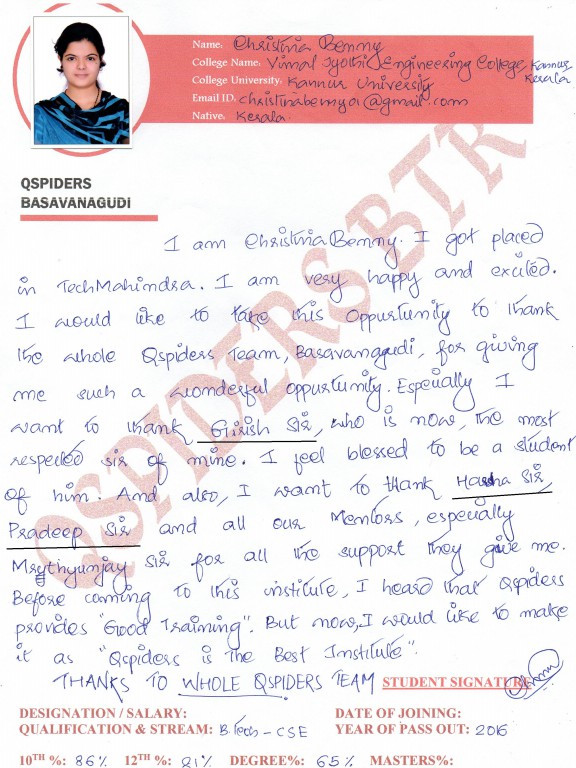 Name: Christina Benny
College Name: Vimal Jyothi Engineering College, Kannur
Kerala
College University: Kannur University
Email ID: christinabennya@gmail.com
Native: Kerala.
QSPIDERS
BASAVANAGUDI
QSPIDERS BTR
I am Christina Benny. I got placed
in TechMahindra. I am very happy and excited.
I would like to take this Oppurtunity to thank
the whole Qspiders Team, Basavangudi, for giving
me such a wonderful oppurtunity. Especially I
want to thank Girish Sir, who is now, the most
respected sir of mine. I feel blessed to be a student
of him. And also, I want to thank Harsha Sir,
Pradeep Sir and all our Mentors, especially
Mrythyunjay Sir for all the support they give me.
Before coming to this institute, I heard that Qspiders
provides "Good Training". But now, I would like to make
it as "Qspiders is The Best Institute".
THANKS TO WHOLE QSPIDERS TEAM STUDENT SIGNATURE
DESIGNATION / SALARY: DATE OF JOINING:
QUALIFICATION & STREAM: B.Tech - CSE YEAR OF PASS OUT: 2016
10TH %: 86% 12TH %: 81% DEGREE%: 65% MASTERS%: